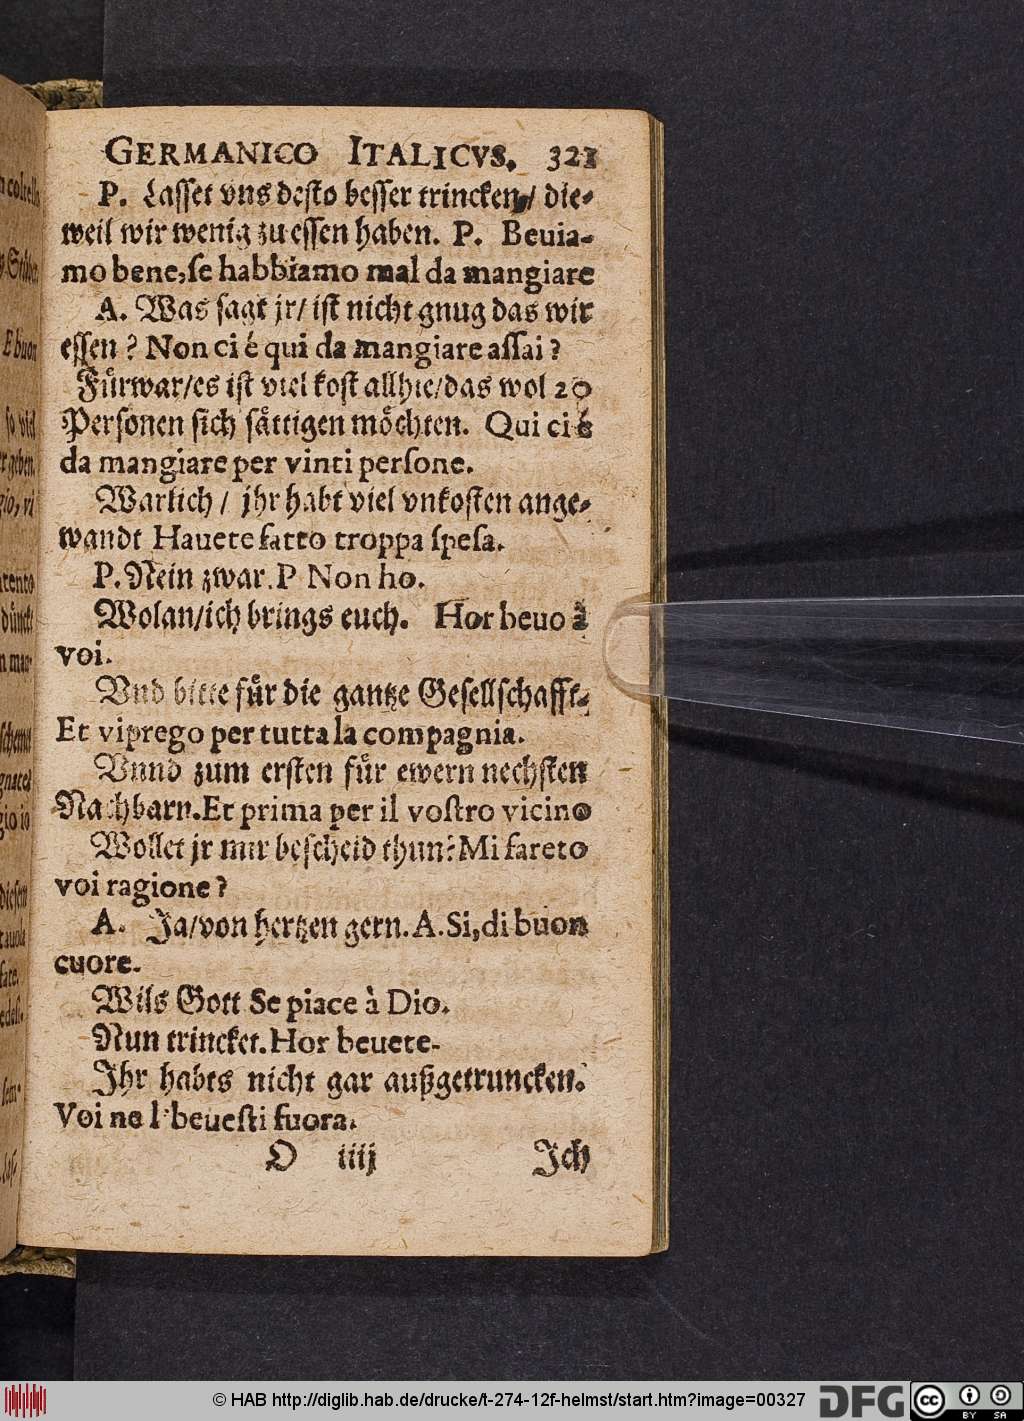 GERMANICO ITALICVS. 321
P. Lasset vns desto besser trincken/ die-
weil wir wenig zu essen haben. P. Beuia-
mo bene, ſe habbiamo mal da mangiare
A. Was sagt jr/ ist nicht gnug das wir
essen ? Non ci é qui da mangiare aſſai ?
Fürwar/es ist viel kost allhie/das wol 20
Personen sich sättigen möchten. Qui ci é
da mangiare per vinti perſone.
Warlich / jhr habt viel vnkosten ange-
wandt Hauete fatto troppa ſpeſa.
P. Nein zwar. P Non ho.
Wolan/ich brings euch. Hor beuo à
voi.
Vnd bitte für die gantze Gesellschafft.
Et vi prego per tutta la compagnia.
Vnnd zum ersten für ewern nechsten
Nachbarn. Et prima per il voſtro vicino
Wollet jr mir bescheid thun? Mi farete
voi ragione ?
A. Ja/von hertzen gern. A. Si, di buon
cuore.
Wils Gott Se piace à Dio.
Nun trincket. Hor beuete.
Jhr habts nicht gar außgetruncken.
Voi no l' beueſti fuora.
O iiij Jch
a coltello
E buon
so viel
geben
gio, vi
dünckt
gio io
diesen
tauola
© HAB http://diglib.hab.de/drucke/t-274-12f-helmst/start.htm?image=00327
DFG
cc BY SA